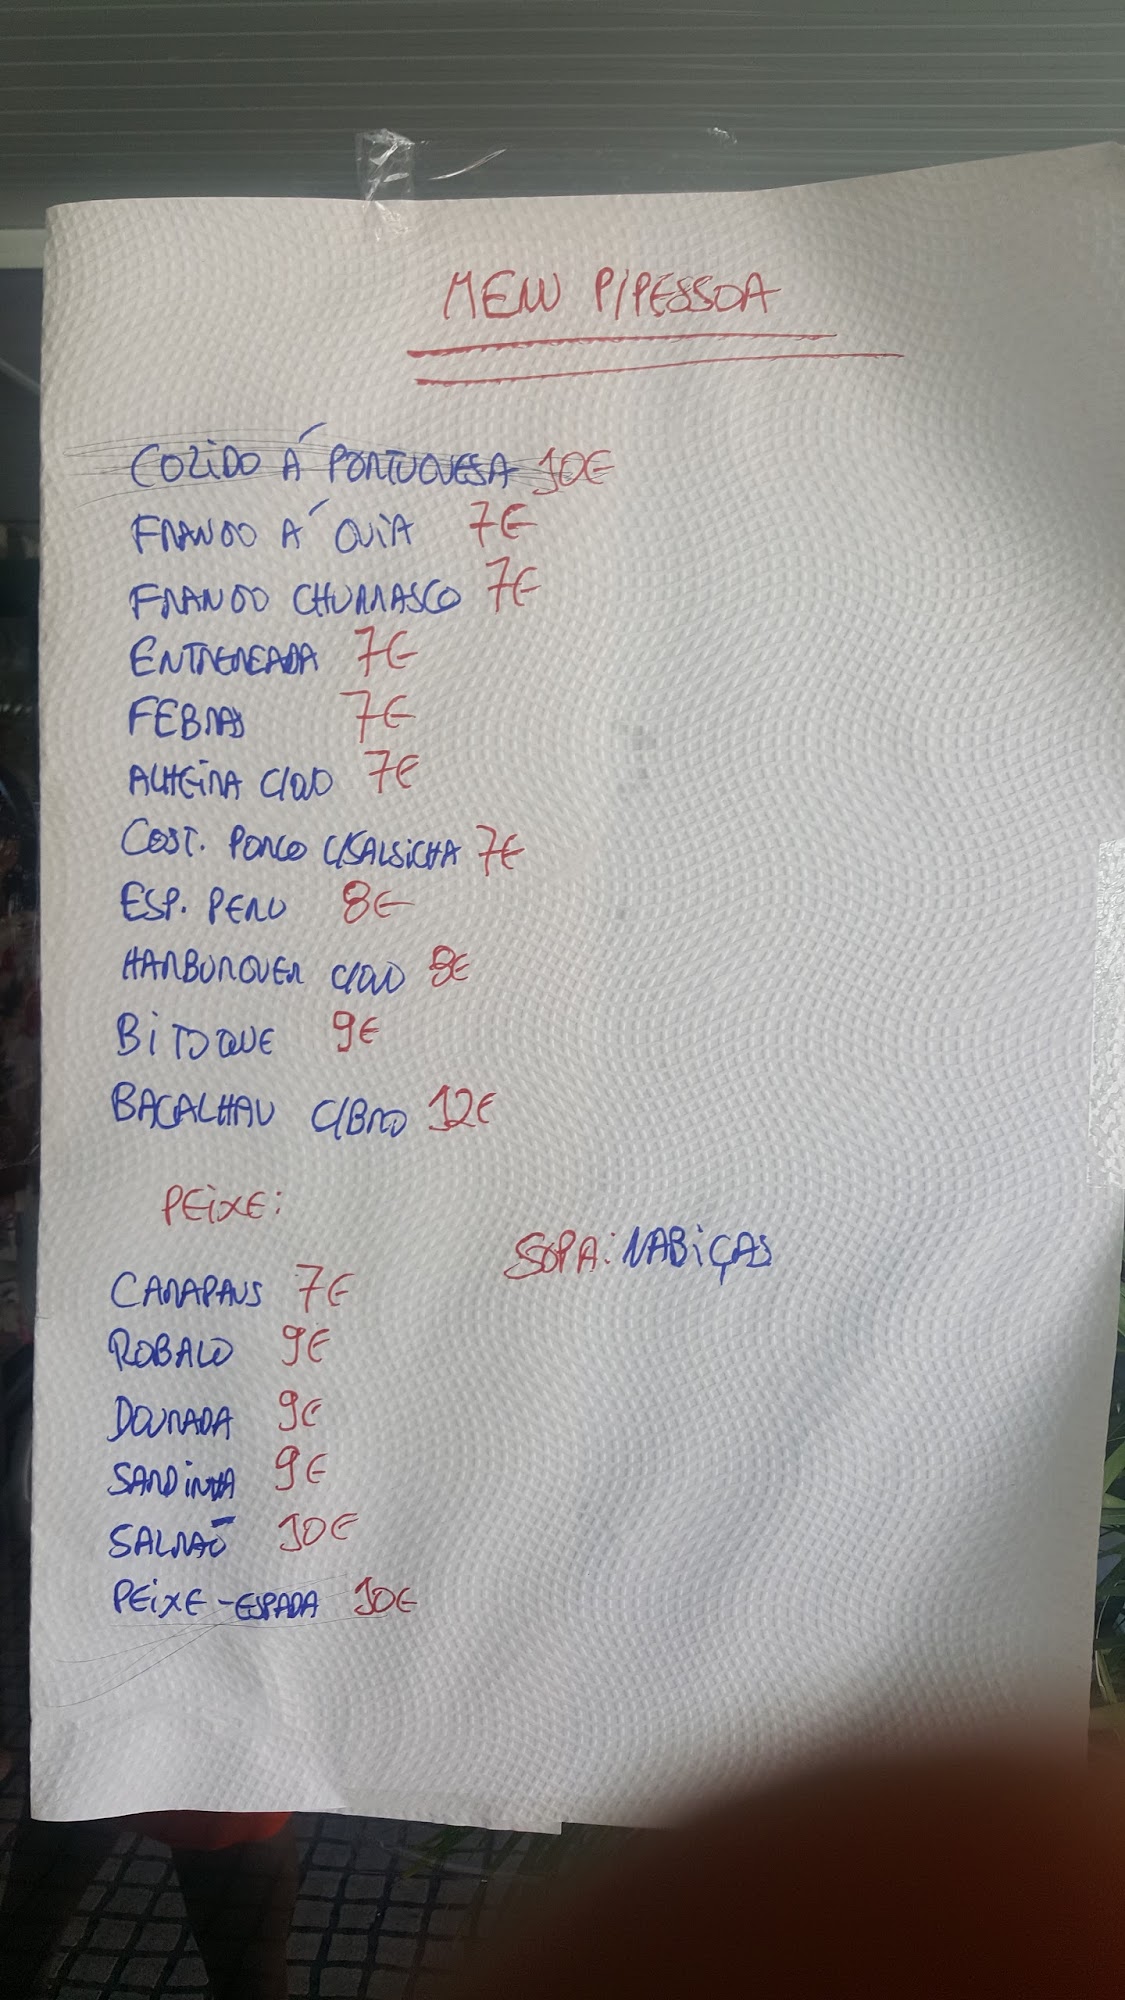 MENU P/PESSOA
COZIDO Á PORTUGUESA 10€
FRANGO Á GUIA 7€
FRANGO CHURRASCO 7€
ENTREMEADA 7€
FEBRAS 7€
ALHEIRA C/OVO 7€
COST. PORCO C/SALSICHA 7€
ESP. PERU 8€
HAMBURGUER C/OVO 8€
BITOQUE 9€
BACALHAU C/BRO 12€
PEIXE:
SOPA: NABIÇAS
CARAPAUS 7€
ROBALO 9€
DOURADA 9€
SARDINHA 9€
SALMÃO 10€
PEIXE-ESPADA 10€